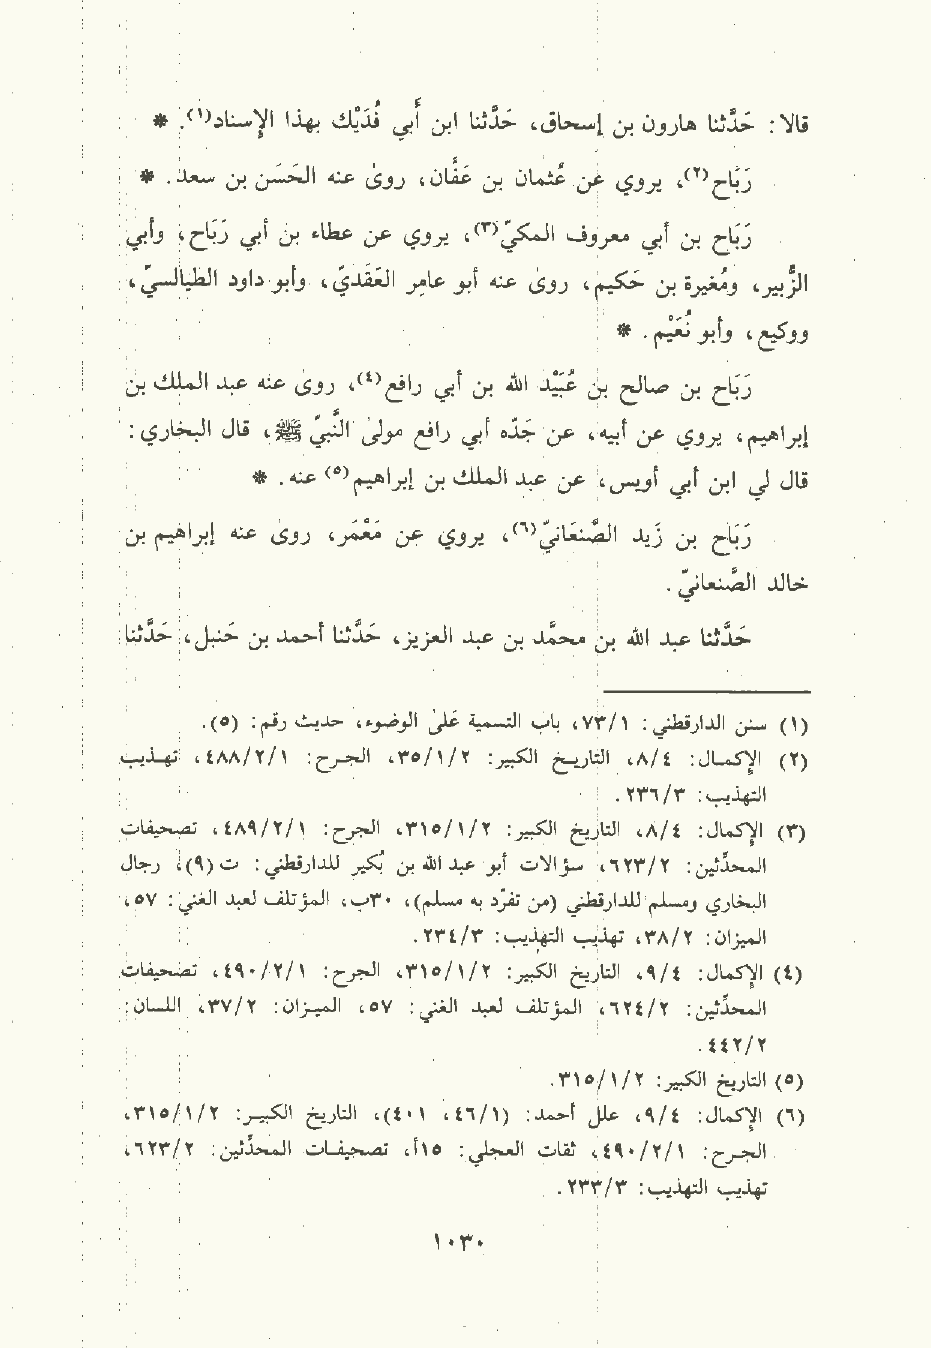 قالا: حَدَّثنا هارون بن إسحاق، حَدَّثنا ابن أَبي فُدَيْك بهذا الإسناد(١). *
رَبَاح(٢)، يروي عن عُثمان بن عَفَّان، روىٰ عنه الحَسَن بن سعد. *
رَبَاح بن أبي معروف المكيّ(٣)، يروي عن عطاء بن أبي رَبَاح، وأبي
الزُّبير، ومُغيرة بن حَكيم، روىٰ عنه أبو عامر العَقَديّ، وأبو داود الطيالسيّ،
ووكيع، وأبو نُعَيْم. *
رَبَاح بن صالح بن عُبَيْد الله بن أبي رافع(٤)، روىٰ عنه عبد الملك بن
إبراهيم، يروي عن أبيه، عن جَدّه أبي رافع مولىٰ النَّبيّ ﷺ، قال البخاري:
قال لي ابن أبي أويس، عن عبد الملك بن إبراهيم(٥) عنه. *
رَبَاح بن زَيد الصَّنعَانيّ(٦)، يروي عن مَعْمَر، روىٰ عنه إبراهيم بن
خالد الصَّنعانيّ.
حَدَّثنا عبد الله بن محمَّد بن عبد العزيز، حَدَّثنا أحمد بن حَنبل، حَدَّثنا
(١) سنن الدارقطني: ٧٣/١، باب التسمية عَلىٰ الوضوء، حديث رقم: (٥).
(٢) الإكمـال: ٨/٤، التاريـخ الكبير: ٣٥/١/٢، الجـرح: ٤٨٨/٢/١، تهـذيـب
التهذيب: ٢٣٦/٣.
(٣) الإكمال: ٨/٤، التاريخ الكبير: ٣١٥/١/٢، الجرح: ٤٨٩/٢/١، تصحيفات
المحدِّثين: ٦٢٣/٢، سؤالات أبو عبد الله بن بُكير للدارقطني: ت (٩)، رجال
البخاري ومسلم للدارقطني (من تفرّد به مسلم)، ٣٠ب، المؤتلف لعبد الغني: ٥٧،
الميزان: ٣٨/٢، تهذيب التهذيب: ٢٣٤/٣.
(٤) الإكمال: ٩/٤، التاريخ الكبير: ٣١٥/١/٢، الجرح: ٤٩٠/٢/١، تصحيفات
المحدِّثين: ٦٢٤/٢، المؤتلف لعبد الغني: ٥٧، الميـزان: ٣٧/٢، اللسان:
٤٤٢/٢.
(٥) التاريخ الكبير: ٣١٥/١/٢.
(٦) الإكمال: ٩/٤، علل أحمد: (٤٦/١، ٤٠١)، التاريخ الكبـير: ٣١٥/١/٢،
الجـرح: ٤٩٠/٢/١، ثقات العجلي: ١٥أ، تصحيفـات المحدِّثين: ٦٢٣/٢،
تهذيب التهذيب: ٢٣٣/٣.
١٠٣٠